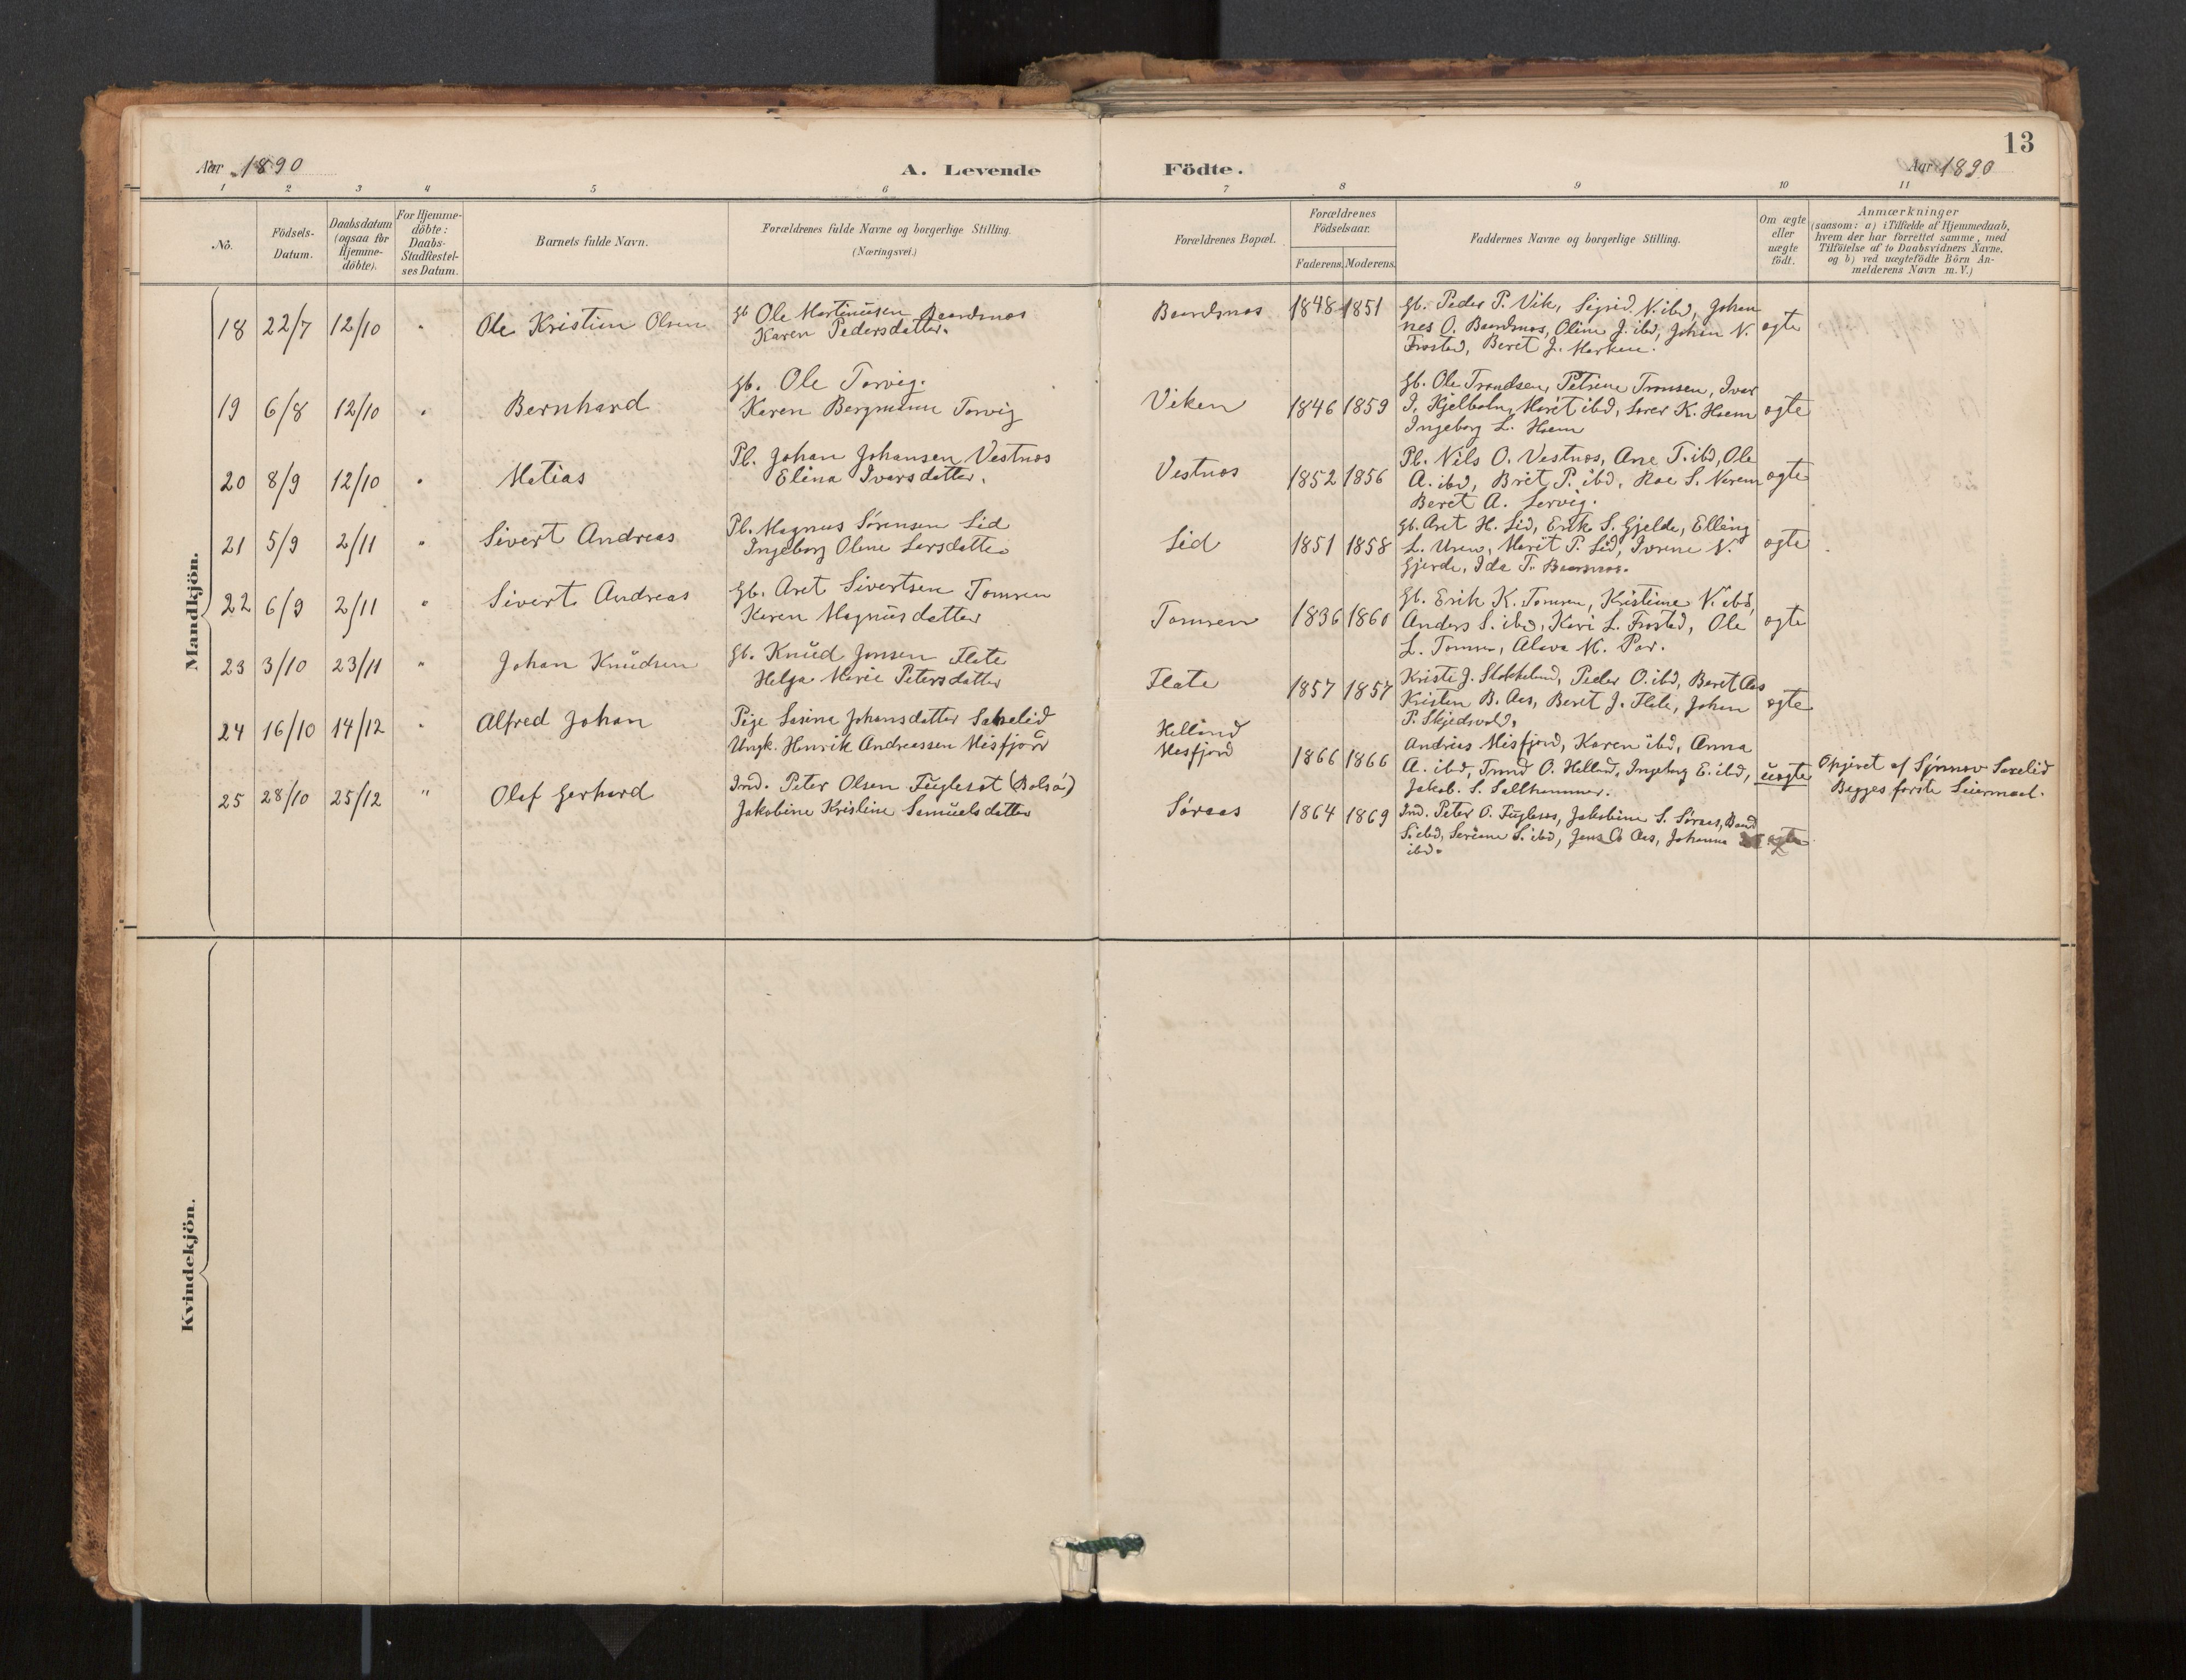 13
Aar 1890
A. Levende Födte.
Aar 1890
1 2 3 4 5 6 7 8 9 10 11
No.
Födsels-Datum.
Daabsdatum (ogsaa for Hjemme-döbte).
For Hjemme-döbte: Daabs-Stadfæstel-ses Datum.
Barnets fulde Navn.
Forældrenes fulde Navne og borgerlige Stilling.
(Næringsvei.)
Forældrenes Bopæl.
Forældrenes Födselsaar.
Faderens. Moderens.
Faddernes Navne og borgerlige Stilling.
Om ægte eller uægte födt.
Anmærkninger
(saasom: a) i Tilfælde af Hjemmedaab,
hvem der har forrettet samme, med
Tilföielse af to Daabsvidners Navne,
og b) ved uægtefödte Börn An-
melderens Navn m. V.)
Mandkjön.
18 22/7 12/10 " Ole Kristian Olsen
Gb Ole Martinusen Baardnæs
Karen Pedersdatter.
Baardnæs 1848 1851
Gb. Peder P. Vik, Sigrid N. ibd, Johan
nes O. Baardnæs, Oline J. ibd, Johan N.
Frostad, Beret J.
ægte
19 6/8 12/10 " Bernhard
Gb. Ole Torvig.
Karen Bergmann Torvig
Viken 1846 1859
Gb. Ole Trondsen, Petrine Tronsen, Ivar
I. Kjelbotn, Marit ibd, Lars K. Hoem
Ingeborg L. Hoem
ægte
20 8/9 12/10 " Matias
Pl. Johan Johansen Vestnæs
Elina Ivarsdatter.
Vestnæs 1852 1856
Pl. Nils O. Vestnæs, Ane T. ibd, Ole
A. ibd, Brit P. ibd, Roe S. Nerem
Beret A.
ægte
21 5/9 2/11 " Sivert Andreas
Pl. Magnus Sörensen Lid
Ingeborg Oline Larsdatter
Lid 1851 1858
Gb. Aret H. Lid, Erik S. Gjelde, Elling
L. Marit P. Lid, N.
Gjerde, Ida T.
ægte
22 6/9 2/11 " Sivert Andreas
Gb. Aret Sivertsen Tomren
Karen Magnusdatter
Tomren 1836 1860
Gb. Erik K. Tomren, Kristine N. ibd,
Anders S. ibd, Kari L. Frostad, Ole
L. Tomren, M.
ægte
23 3/10 23/11 " Johan Knudsen
Gb. Knud Jonsen Flate
Helga Marie Petersdatter
Flate 1857 1857
J. Stokkeland, Peder O. ibd, Beret Aas
Kristen B. Aas, Beret J. Flate, Johan
P. Skjedsvold.
ægte
24 16/10 14/12 " Alfred Johan
Pige Sasina Johansdatter Saxelid
Ungk. Henrik Andreassen Misfjord
Helland
Misfjord
1866 1866
Andreas Misfjord, Karen ibd, Anna
A. ibd, Trond O. Helland, Ingeborg E. ibd,
Jakob. S. Salthammer.
uægte
Opgivet af Synnøv Saxelid
Begges første Leiermaal.
25 28/10 25/12 " Olaf Gerhard
Ind. Peter Olsen Fuglesæt (Bolsø)
Jakobine Kristine Samuelsdatter
Søraas 1864 1869
Ind. Peter O. Fuglesæt, Jakobine S. Søraas,
S. ibd, S. ibd, Jens O Aas, Johanna
ibd.
ægte
Kvindekjön.